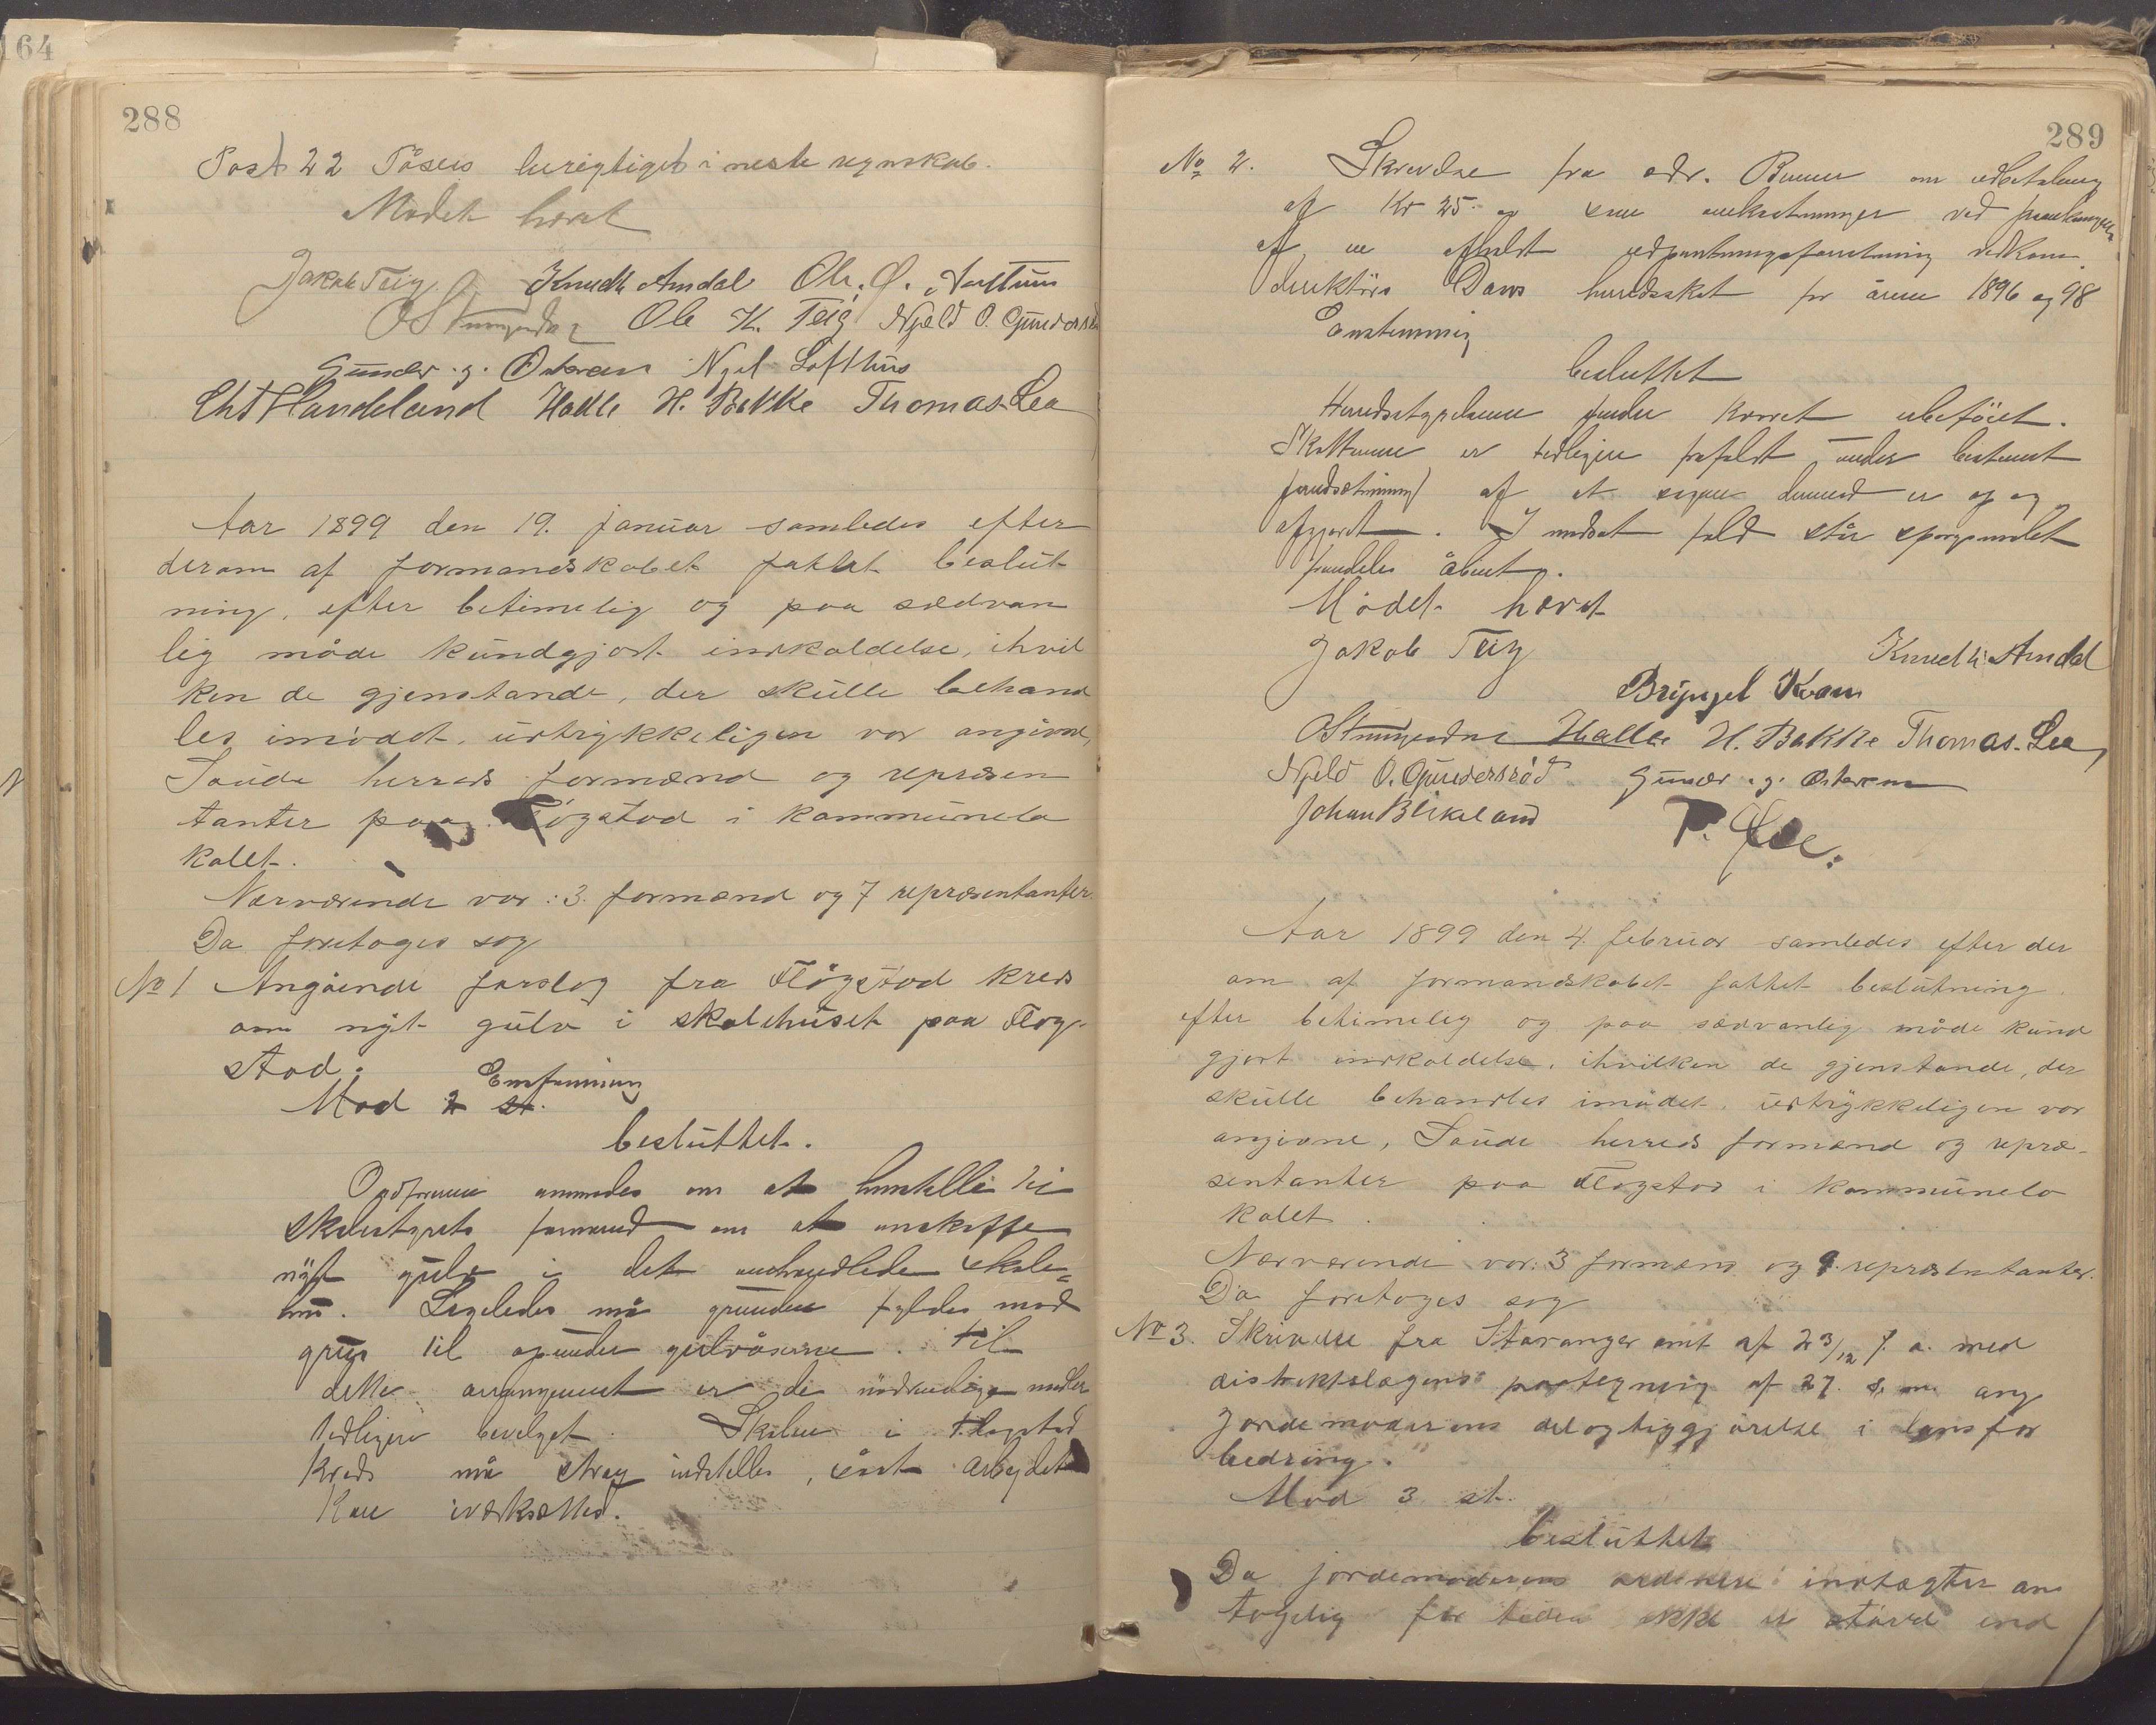 164
288
Post 22 Påsees berigtiget i neste regnskab.
Mødet hævet
Jakob Teig Knudt Amdal Chr. O. Nerttum
Ole K. Teig Njeld O. Gunderså
Gunder. g. Østerem Njel Lofthus
Cht Handeland Halle H. Bakke Thomas Lea
Aar 1899 den 19. januar samledes efter
derom af formandskabet fattet beslut
ning, efter betimelig og paa sædvan
lig måde kundgjort indkaldelse, ihvil
ken de gjenstande, der skulle behand
les imødet, udtrykkeligen var angivne,
Saude herreds formænd og repræsen
tanter paa Fløgstad i kommunelo
kalet.
Nærværende var: 3 formænd og 7 repræsentanter.
Da foretoges sag
No 1 Angående forslag fra Fløgstad kreds
om nyt gulv i skolehuset paa Fløg-
stad.
Enstemmig
Mod 2 st.
besluttet.
Ordføreren anmodes om at henstille til
skolestyrets formand om at anskaffe
nyt gulv i det omhandlede skole=
hus. Ligeledes må grunden fyldes med
grus til opunder gulvåserne. Til
dette arrangement er de nødvendige midler
tidligere bevilget. Skolen i Fløgstad
kreds må strax indstilles, såat arbeidet
kan iværksættes.
289
No 2. Skrivelse fra adv. Bumer om udbetaling
af Kr 25. og som omkostninger ved
af en afholdt udpantningsforretning vedkom.
direktørs Daws herredsskat for årene 1896 og 98
Enstemmig
besluttet
Herredsstyrelsen finder kravet ubeføiet.
Skatterne er tidligere frafaldt under bestemt
forudsætning af at sagen dermed er op og
afgjort. I modsat fald står spørgsmålet
fremdeles åbent.
Mødet hævet
Jakob Teig Knud K. Amdal
Bryngel Kvam
Halle H. Bakke Thomas. Lea
Njeld O. Gundersrød Gunder. g. Østerem
Johan Blikeland
Aar 1899 den 4. februar samledes efter der
om af formandskabet fattet beslutning.
efter betimelig og paa sædvanlig måde kund
gjort indkaldelse, ihvilken de gjenstande, der
skulle behandles imødet, udtrykkeligen var
angivne, Saude herreds formænd og repræ-
sentanter paa Fløgstad i kommunelo
kalet.
Nærværende var: 3 formænd og 9 repræsentanter.
Da foretoges sag
No 3. Skrivelse fra Stavanger amt af 23/12 f. a. med
distriktslægens paategning af 27. s. m. ang
Jordemoderens delagtiggjørelse i lønsfor
bedring.
Mod 3 st.
besluttet
Da jordemoderens ordinære indtægter an
tagelig for tiden ikke er større end